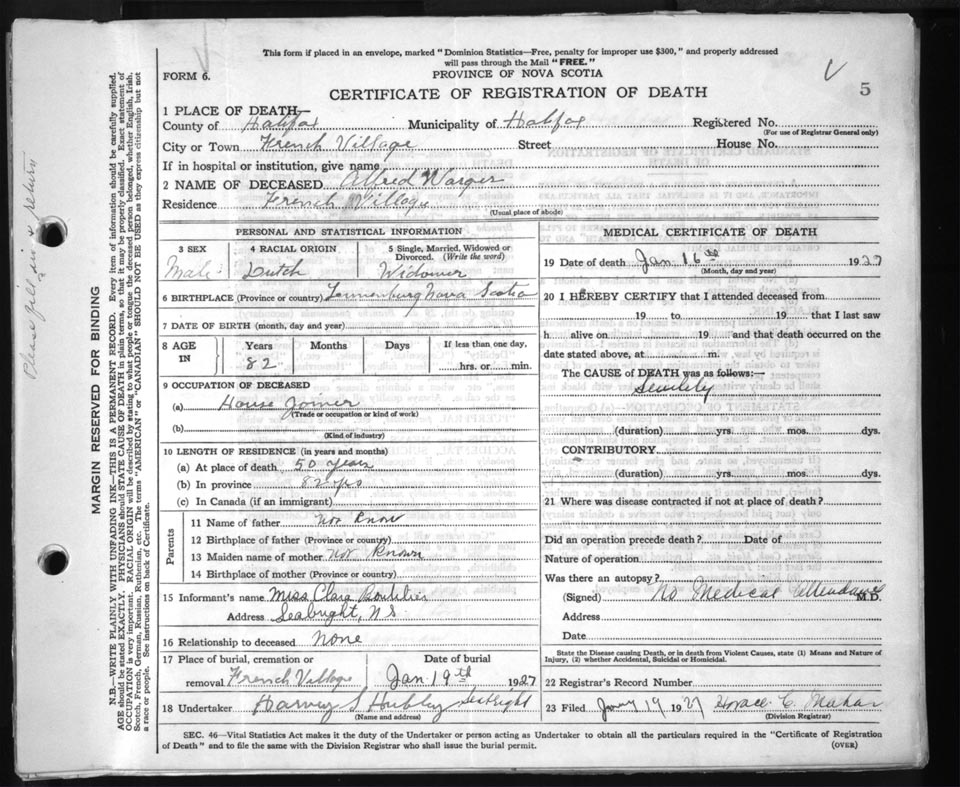 This form if placed in an envelope, marked "Dominion Statistics—Free, penalty for improper use $300," and properly addressed
will pass through the Mail "FREE."
FORM 6.
PROVINCE OF NOVA SCOTIA
CERTIFICATE OF REGISTRATION OF DEATH
5
1 PLACE OF DEATH—
County of Halifax Municipality of Halifax Registered No.
(For use of Registrar General only)
City or Town French Village Street House No.
If in hospital or institution, give name
2 NAME OF DECEASED Alfred
Residence French Village
(Usual place of abode)
PERSONAL AND STATISTICAL INFORMATION
3 SEX 4 RACIAL ORIGIN 5 Single, Married, Widowed or
Divorced. (Write the word)
Male Dutch Widower
6 BIRTHPLACE (Province or country) Lunenburg Nova Scotia
7 DATE OF BIRTH (month, day and year)
8 AGE IN Years Months Days If less than one day,
82 hrs. or min.
9 OCCUPATION OF DECEASED
(a) House Joiner
(Trade or occupation or kind of work)
(b)
(Kind of industry)
10 LENGTH OF RESIDENCE (in years and months)
(a) At place of death 50 years
(b) In province 82 yrs
(c) In Canada (if an immigrant)
Parents
11 Name of father Not Know
12 Birthplace of father (Province or country)
13 Maiden name of mother Not Known
14 Birthplace of mother (Province or country)
15 Informant's name Miss Clara Boutilier
Address Seabright, N.S.
16 Relationship to deceased None
17 Place of burial, cremation or Date of burial
removal French Village Jan 19th 1927
18 Undertaker Harvey S Hubley Seabright
(Name and address)
MEDICAL CERTIFICATE OF DEATH
19 Date of death Jan 16th 1927
(Month, day and year)
20 I HEREBY CERTIFY that I attended deceased from
19 to 19 that I last saw
h alive on 19 and that death occurred on the
date stated above, at m.
The CAUSE of DEATH was as follows:—
Senility
(duration) yrs. mos. dys.
CONTRIBUTORY
(duration) yrs. mos. dys.
21 Where was disease contracted if not at place of death?
Did an operation precede death? Date of
Nature of operation
Was there an autopsy?
(Signed) No Medical Attendance M.D.
Address
Date
State the Disease causing Death, or in death from Violent Causes, state (1) Means and Nature of
Injury, (2) whether Accidental, Suicidal or Homicidal.
22 Registrar's Record Number
23 Filed Jany 19 1927 Horace C.
(Division Registrar)
SEC. 46—Vital Statistics Act makes it the duty of the Undertaker or person acting as Undertaker to obtain all the particulars required in the "Certificate of Registration
of Death" and to file the same with the Division Registrar who shall issue the burial permit.
(OVER)
Please fill in & return
MARGIN RESERVED FOR BINDING
N.B.—WRITE PLAINLY WITH UNFADING INK—THIS IS A PERMANENT RECORD. Every item of information should be carefully supplied.
AGE should be stated EXACTLY. PHYSICIANS should STATE CAUSE OF DEATH in plain terms, so that it may be properly classified. Exact statement of
OCCUPATION is very important. RACIAL ORIGIN will be described by stating to what people or tongue the deceased person belonged, whether English, Irish,
Scotch, French, German, Russian, Ruthenian, etc. The terms "AMERICAN" or "CANADIAN" SHOULD NOT BE USED as they express citizenship but not
a race or people. See instructions on back of Certificate.